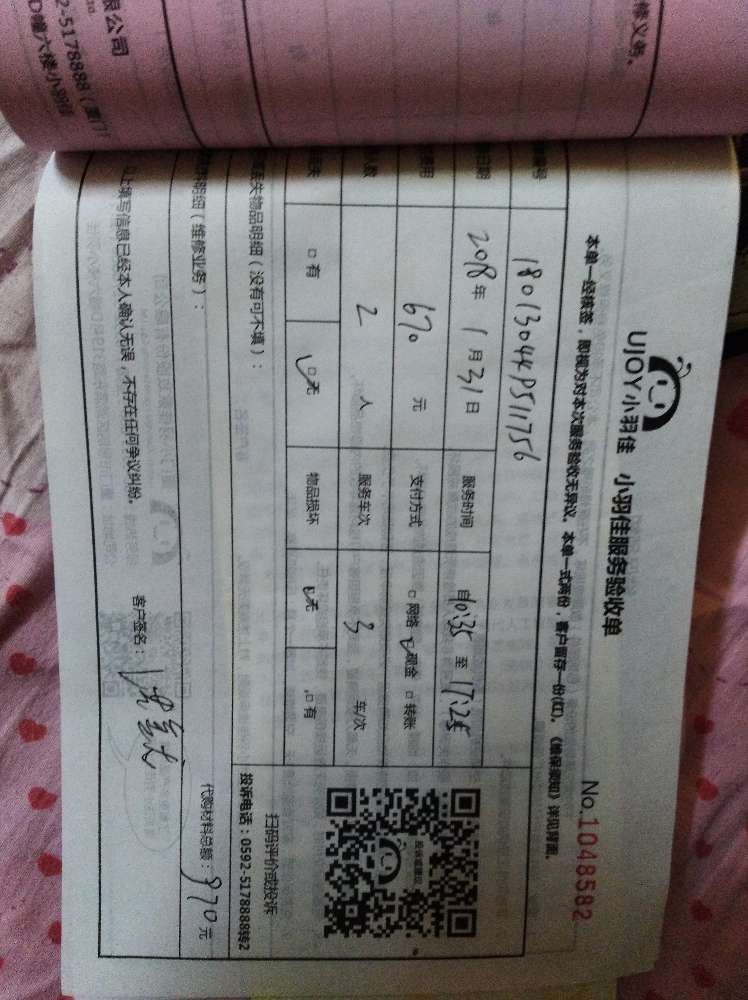 限公司
2-5178888（厦门）
D幢六楼小羽佳
修义务。
UJOY小羽佳 小羽佳服务验收单
No.1048582
本单一经核签，即视为对本次服务验收无异议。本单一式两份，客户留存一份(红)。《维保须知》详见背面。
编号 180130
日期 2018年1月31日 服务时间 自10:35至17:25
费用 670元 支付方式 □网络 ☑现金 □转账
人数 2人 服务车次 3车/次
□有 ☑无 物品损坏 ☑无 □有
丢失物品明细（没有可不填）：
扫码评价或投诉
投诉电话：0592-5178888转2
明细（维修业务）：
代购材料总额：870元
以上填写信息已经本人确认无误，不存在任何争议纠纷。
客户签名：